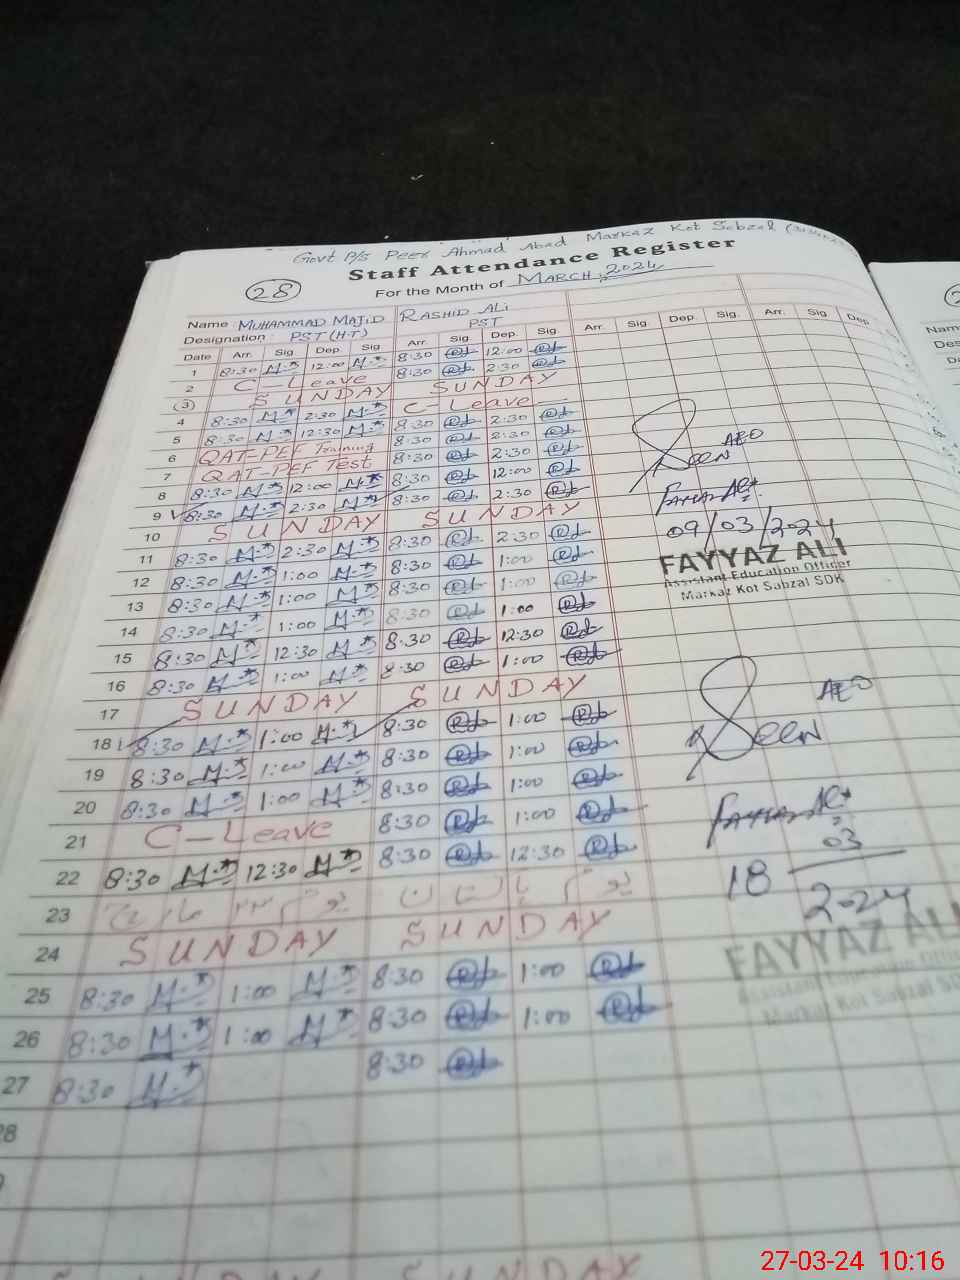 Govt P/s Peer Ahmad Abad Markaz Kot Sabzal
Staff Attendance Register
28
For the Month of MARCH, 2024
Name : MUHAMMAD MAJID RASHID ALi
Designation : PST (H-T) PST
Date Arr. Sig. Dep. Sig. Arr. Sig. Dep. Sig. Arr. Sig. Dep. Sig. Arr. Sig Dep
1 8:30 12:00 8:30 12:00
2 C-Leave 8:30 2:30
(3) SUNDAY SUNDAY
4 8:30 2:30 C-Leave
5 8:30 12:30 8:30 2:30
6 QAT-PEF Training 8:30 2:30
7 QAT-PEF Test 8:30 2:30
8 8:30 12:00 8:30 12:00
9 8:30 2:30 8:30 2:30
10 SUNDAY SUNDAY
11 8:30 2:30 8:30 2:30
12 8:30 1:00 8:30 1:00
13 8:30 1:00 8:30 1:00
14 8:30 1:00 8:30 1:00
15 8:30 12:30 8:30 12:30
16 8:30 1:00 8:30 1:00
17 SUNDAY SUNDAY
18 8:30 1:00 8:30 1:00
19 8:30 1:00 8:30 1:00
20 8:30 1:00 8:30 1:00
21 C-Leave 8:30 1:00
22 8:30 12:30 8:30 12:30
23
24 SUNDAY SUNDAY
25 8:30 1:00 8:30 1:00
26 8:30 1:00 8:30 1:00
27 8:30 8:30
28
SUNDAY SUNDAY
Seen AEO
09/03/2024
FAYYAZ ALI
Assistant Education Officer
Markaz Kot Sabzal SDK
Seen AEO
18 03
2024
FAYYAZ ALI
Assistant Education
Markaz Kot Sabzal
Nam
Des
27-03-24 10:16